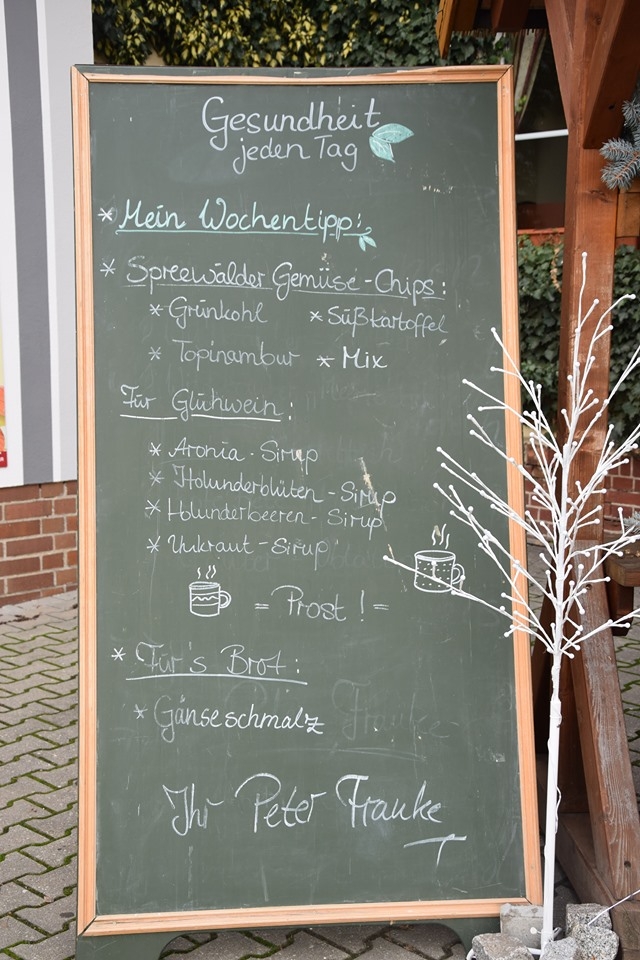 Gesundheit
jeden Tag
* Mein Wochentipp:
* Spreewälder Gemüse-Chips:
* Grünkohl * Süßkartoffel
* Topinambur * Mix
Für Glühwein:
* Aronia-Sirup
* Holunderblüten-Sirup
* Holunderbeeren-Sirup
* Unkraut-Sirup
= Prost! =
* Für's Brot:
* Gänseschmalz
Ihr Peter Franke